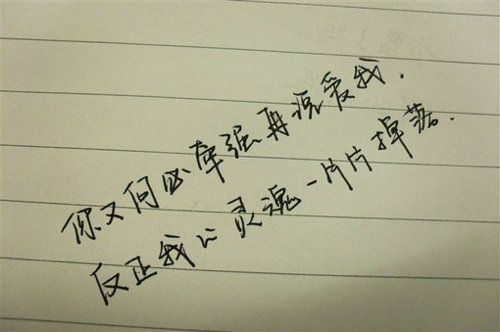 你又何必牵强再说爱我.
反正我的灵魂一片片掉落.